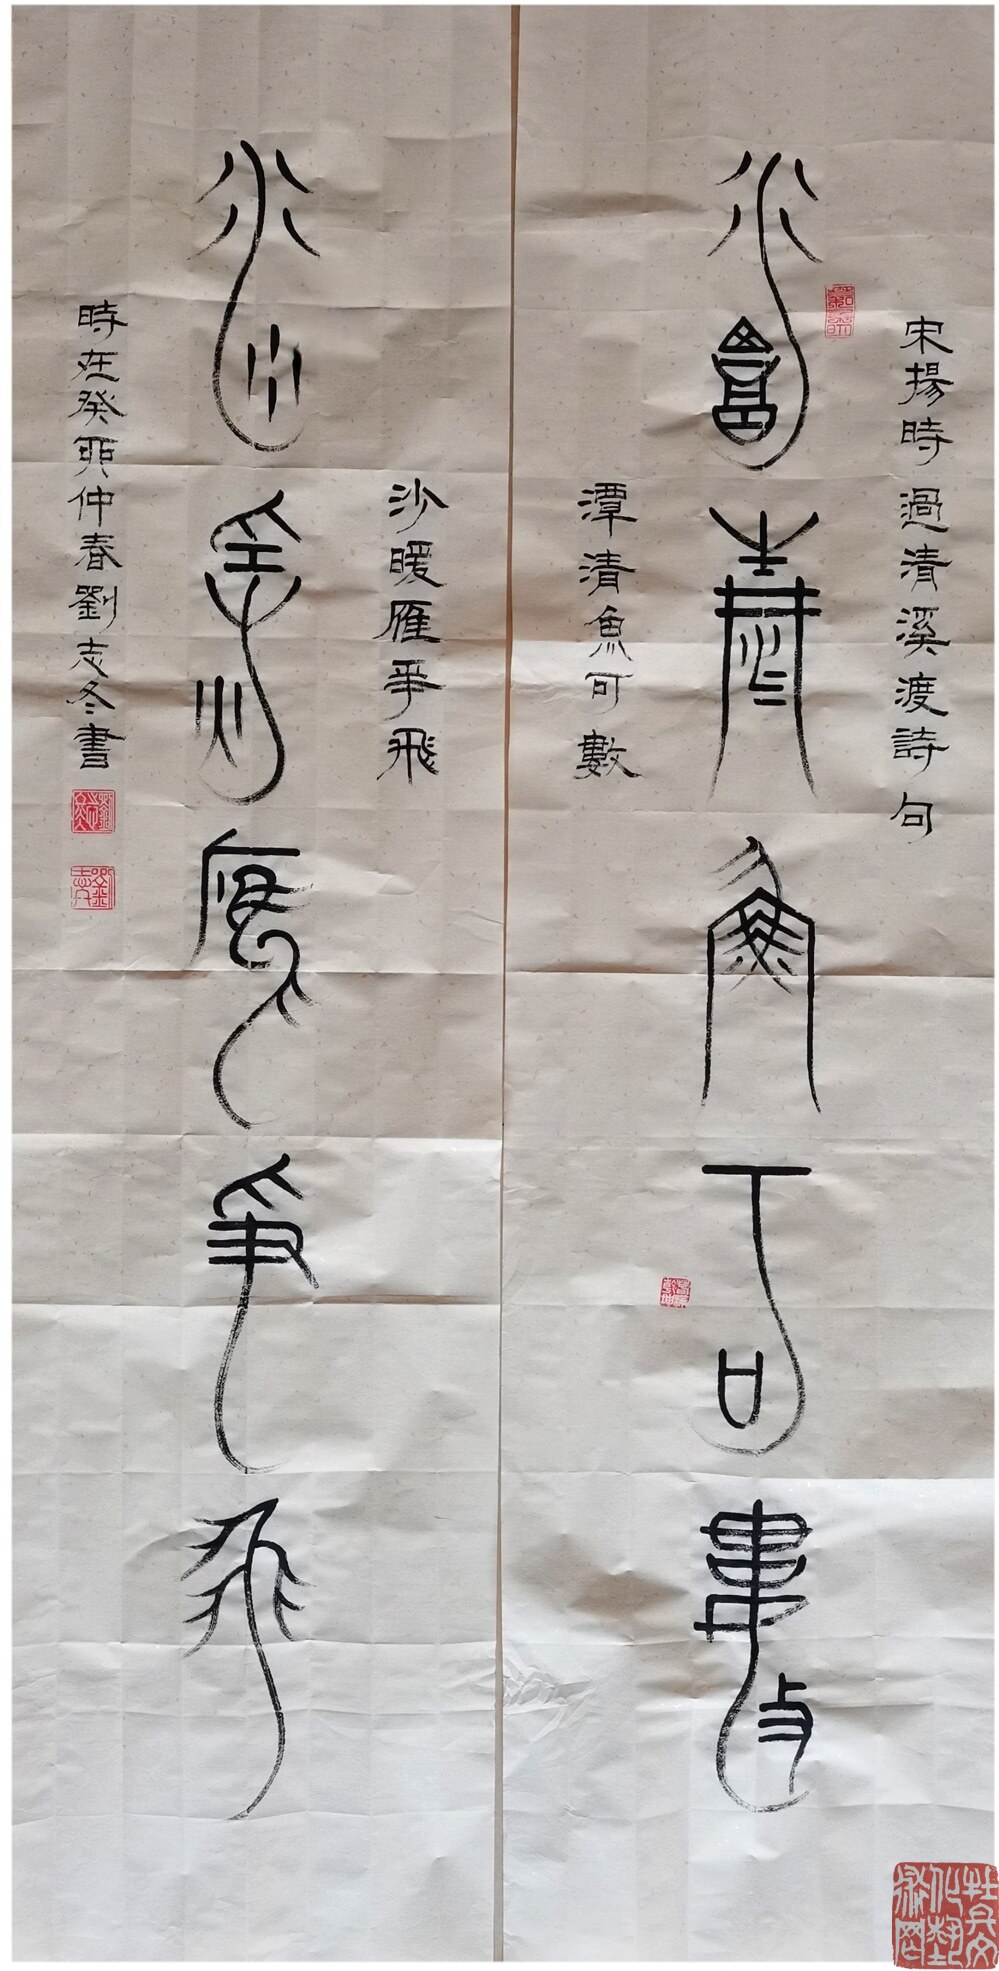 宋揚時過清溪渡詩句
潭清魚可數
潭清魚可數
沙暖雁爭飛
沙暖雁爭飛
時在癸卯仲春劉志冬書